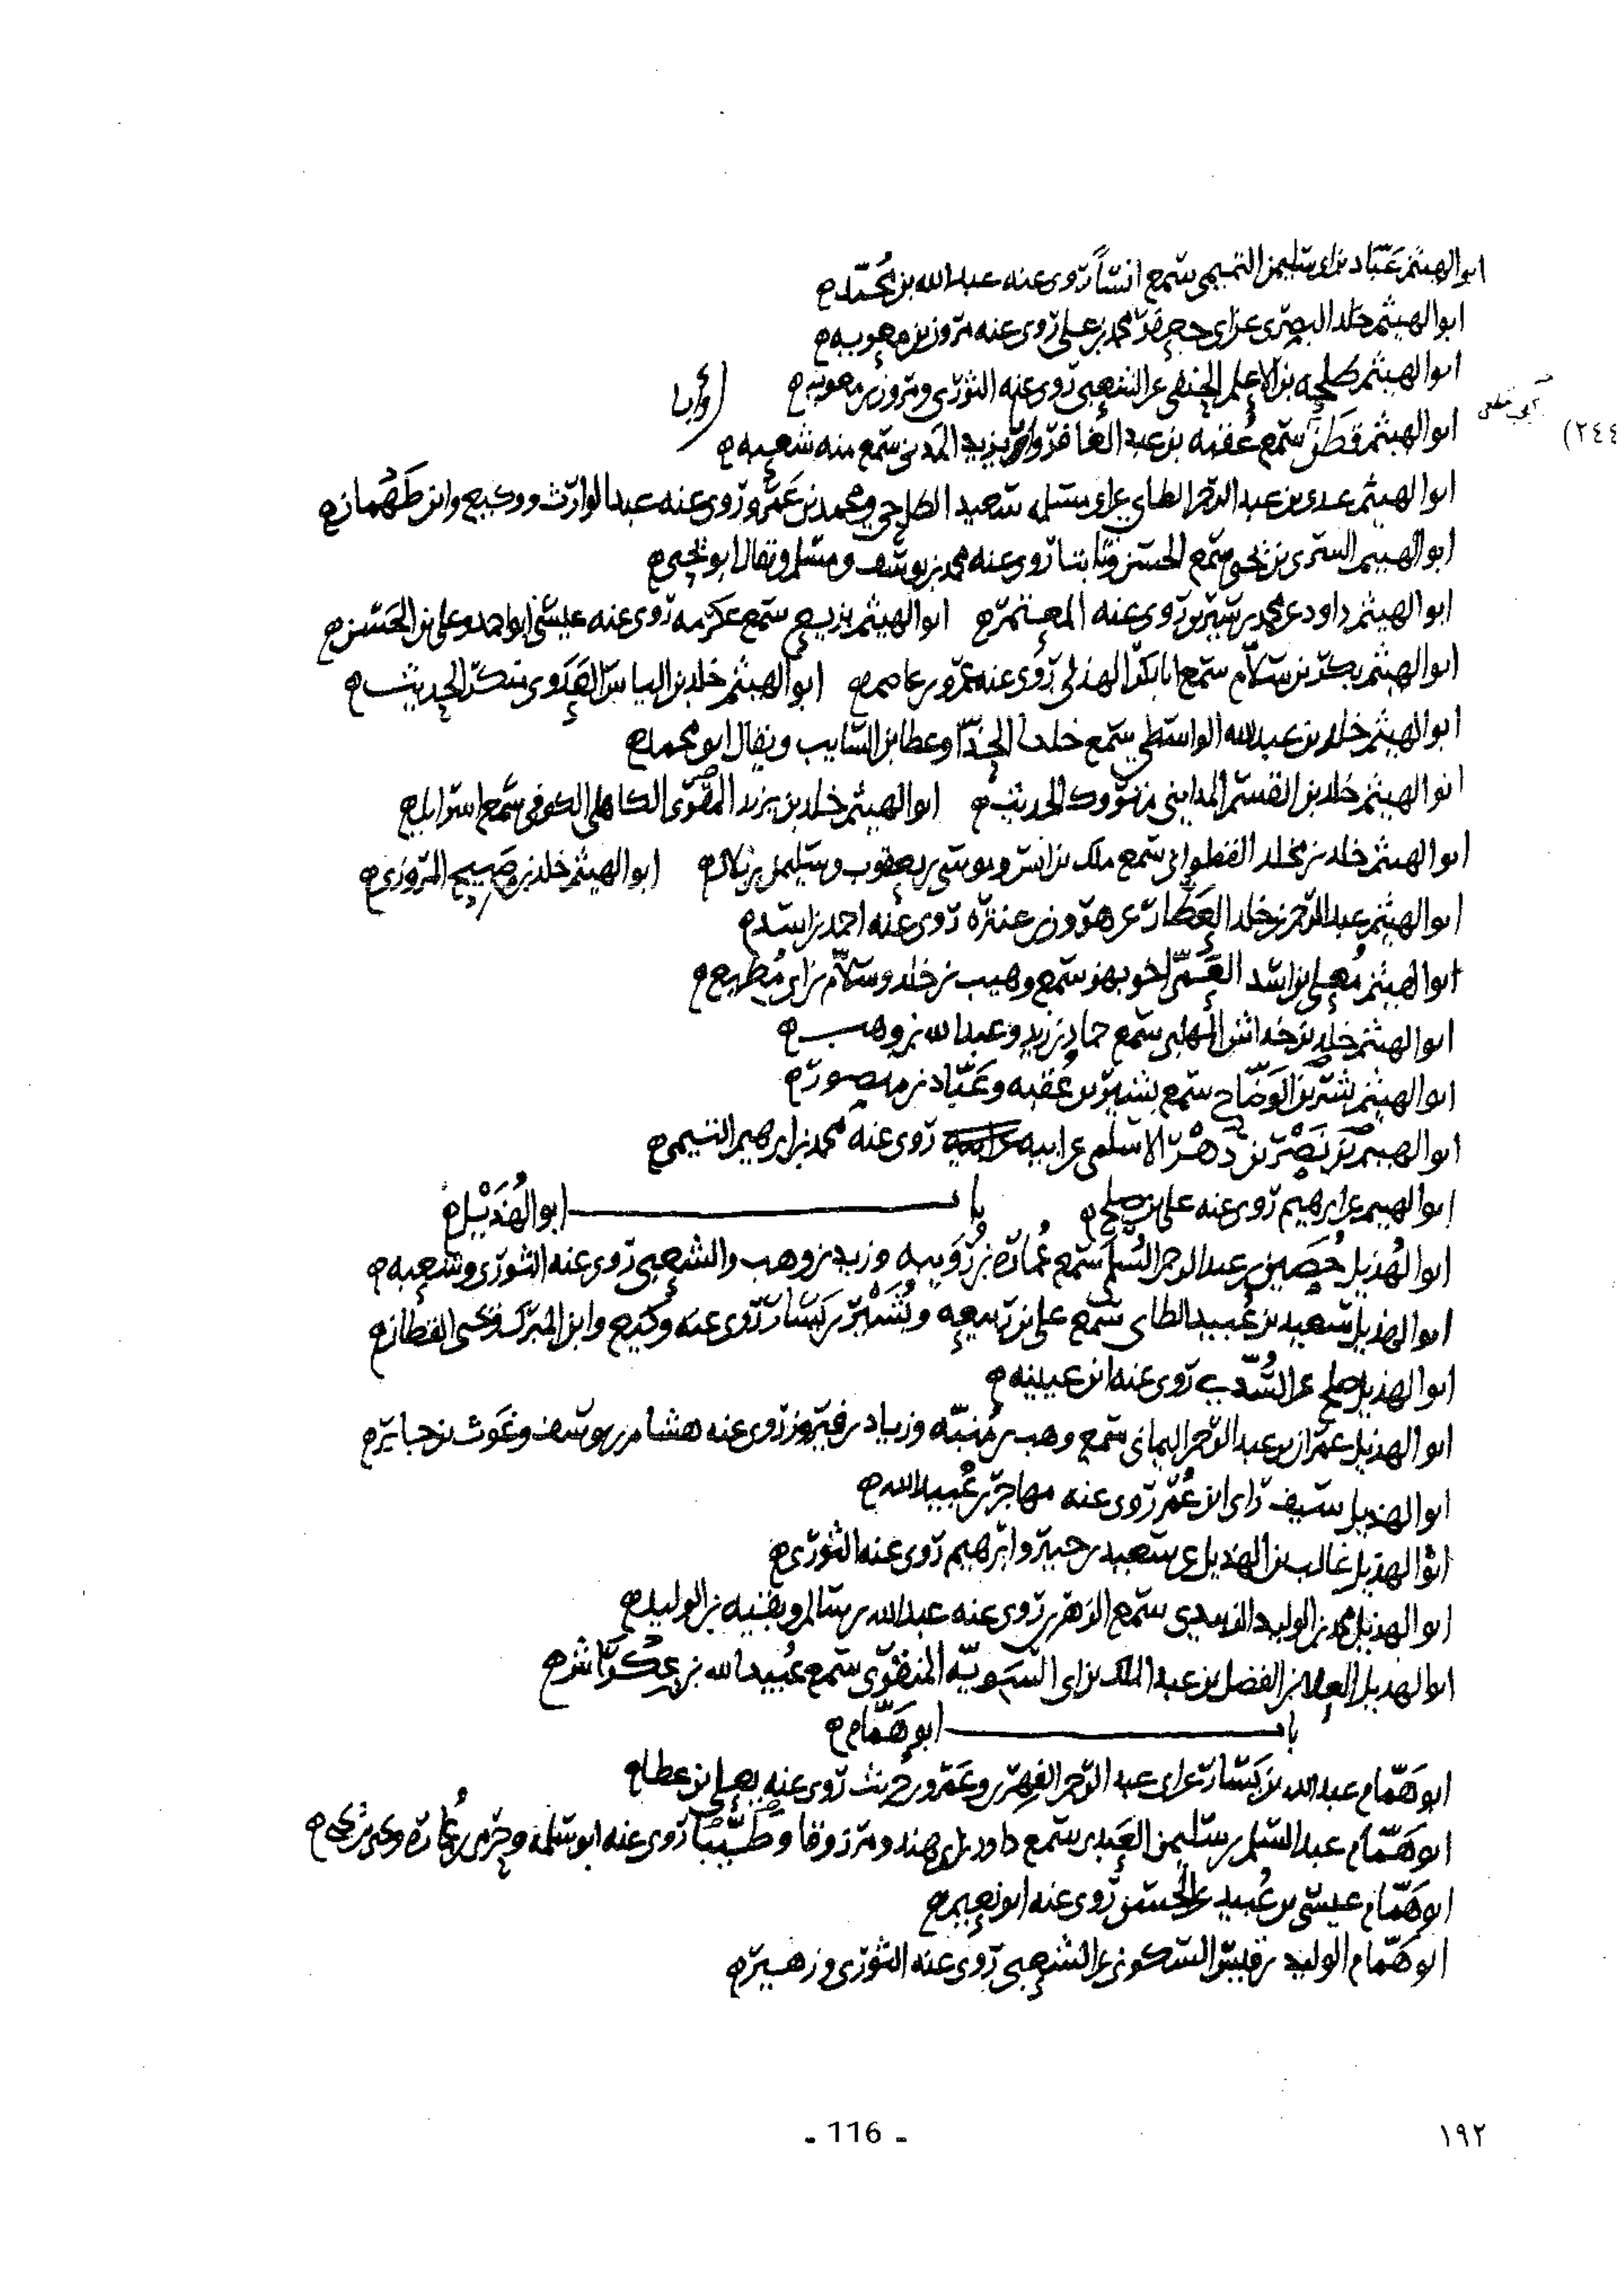 ابو الهيثم عَبَّاد بن ابي سليمن التميمي سمع انسًا روى عنه عبد الله بن محمد
ابو الهيثم خلد البصري عن ابي جعفر محمد بن علي روى عنه مروان بن معوية
ابو الهيثم طلحه بن الاعلم الحنفي عن الشعبي روى عنه الثوري ومروان بن معويه
ابو الهيثم قَطَن سمع عُقبه بن عبد الغافر يزيد المدني سمع منه شعبه
(٢٤٤
ابو الهيثم عدي بن عبد الرحمن الطاي سعيد الطاحي ومحمد بن عَمرو روى عنه عبد الوارث ووكيع وابن طَهْمان
ابو الهيثم السري بن يحيى سمع الحسن وثابتا روى عنه محمد بن يوسف ومسلم ويقال ابو يحيى
ابو الهيثم داود عن محمد بن سيرين روى عنه المعتمر ابو الهيثم بزيع سمع عكرمه روى عنه عيسى ابو احمد وعلي بن الحسن
ابو الهيثم بكر بن سلام سمع ابا بكر الهذلي روى عنه عمرو بن عاصم ابو الهيثم خلد بن الياس العَدَوي منكر الحديث
ابو الهيثم خلد بن عبد الله الواسطي سمع خلدا الحذّا وعطا بن السايب ويقال ابو محمد
ابو الهيثم خلد بن القسم المدايني متروك الحديث ابو الهيثم خلد بن يزيد المقرى الكاهلي الكوفي سمع اسرايل
ابو الهيثم خلد بن مخلد القطواني سمع ملك بن انس وموسى بن يعقوب وسليمن بن بلال ابو الهيثم خلد بن صَبيح المروزي
ابو الهيثم عبد الرحمن بن خلد العَطّار عن هرون بن عنتره روى عنه احمد بن اسد
ابو الهيثم مُعلى بن اسد العَمّي اخو بهز سمع وهيب بن خلد وسلّام بن ابي مُطيع
ابو الهيثم خلد بن خداش المهلبي سمع حماد بن زيد وعبد الله بن وهب
ابو الهيثم بشر بن الوَضّاح سمع بشير بن عُقبه وعَبّاد بن منصور
ابو الهيثم بن نَصْر بن دَهْر الاسلمي عن ابيه روى عنه محمد بن ابرهيم التيمي
ابو الهيثم عن ابرهيم روى عنه علي بن صلح باب ابو الهُذَيْل
ابو الهُذيل حُصَين بن عبد الرحمن السُّلَمي سمع عُمارة بن رُوَيبه وزيد بن وهب والشعبي روى عنه الثوري وشعبه
ابو الهذيل سعيد بن عُبيد الطاي سمع علي بن ربيعه وبُشَيْر بن يَسَار روى عنه وكيع وابن المبرك ويحيى القطان
ابو الهذيل صلح عن السُّدّي روى عنه ابن عيينه
ابو الهذيل عمران بن عبد الرحمن اليماني سمع وهب بن مُنَبّه وزياد بن فيروز روى عنه هشام بن يوسف وغَوث بن جابر
ابو الهذيل سيف راى ابن عُمر روى عنه مهاجر بن عُبيد الله
ابو الهذيل غالب بن الهذيل عن سعيد بن جبير وابرهيم روى عنه الثوري
ابو الهذيل محمد بن الوليد الزبيدي سمع الزهري روى عنه عبد الله بن سالم وبقيه بن الوليد
ابو الهذيل العلا بن الفضل بن عبد الملك بن ابي السَّويّه المنقري سمع عُبيد الله بن عِكْرَاش
باب ابو هَمّام
ابو هَمّام عبد الله بن يَسَار عن ابي عبد الرحمن الفهري وعَمرو بن حريث روى عنه يعلى بن عطا
ابو هَمّام عبد السلم بن سليمن العبدي سمع داود بن ابي هند ومرزوقا روى عنه ابو سلمه وحرمي بن عُماره
ابو هَمّام عيسى بن عُبيد عن الحسن روى عنه ابو نعيم
ابو هَمّام الوليد بن قيس السكوني عن الشعبي روى عنه الثوري وزهير
- 116 -
١٩٢